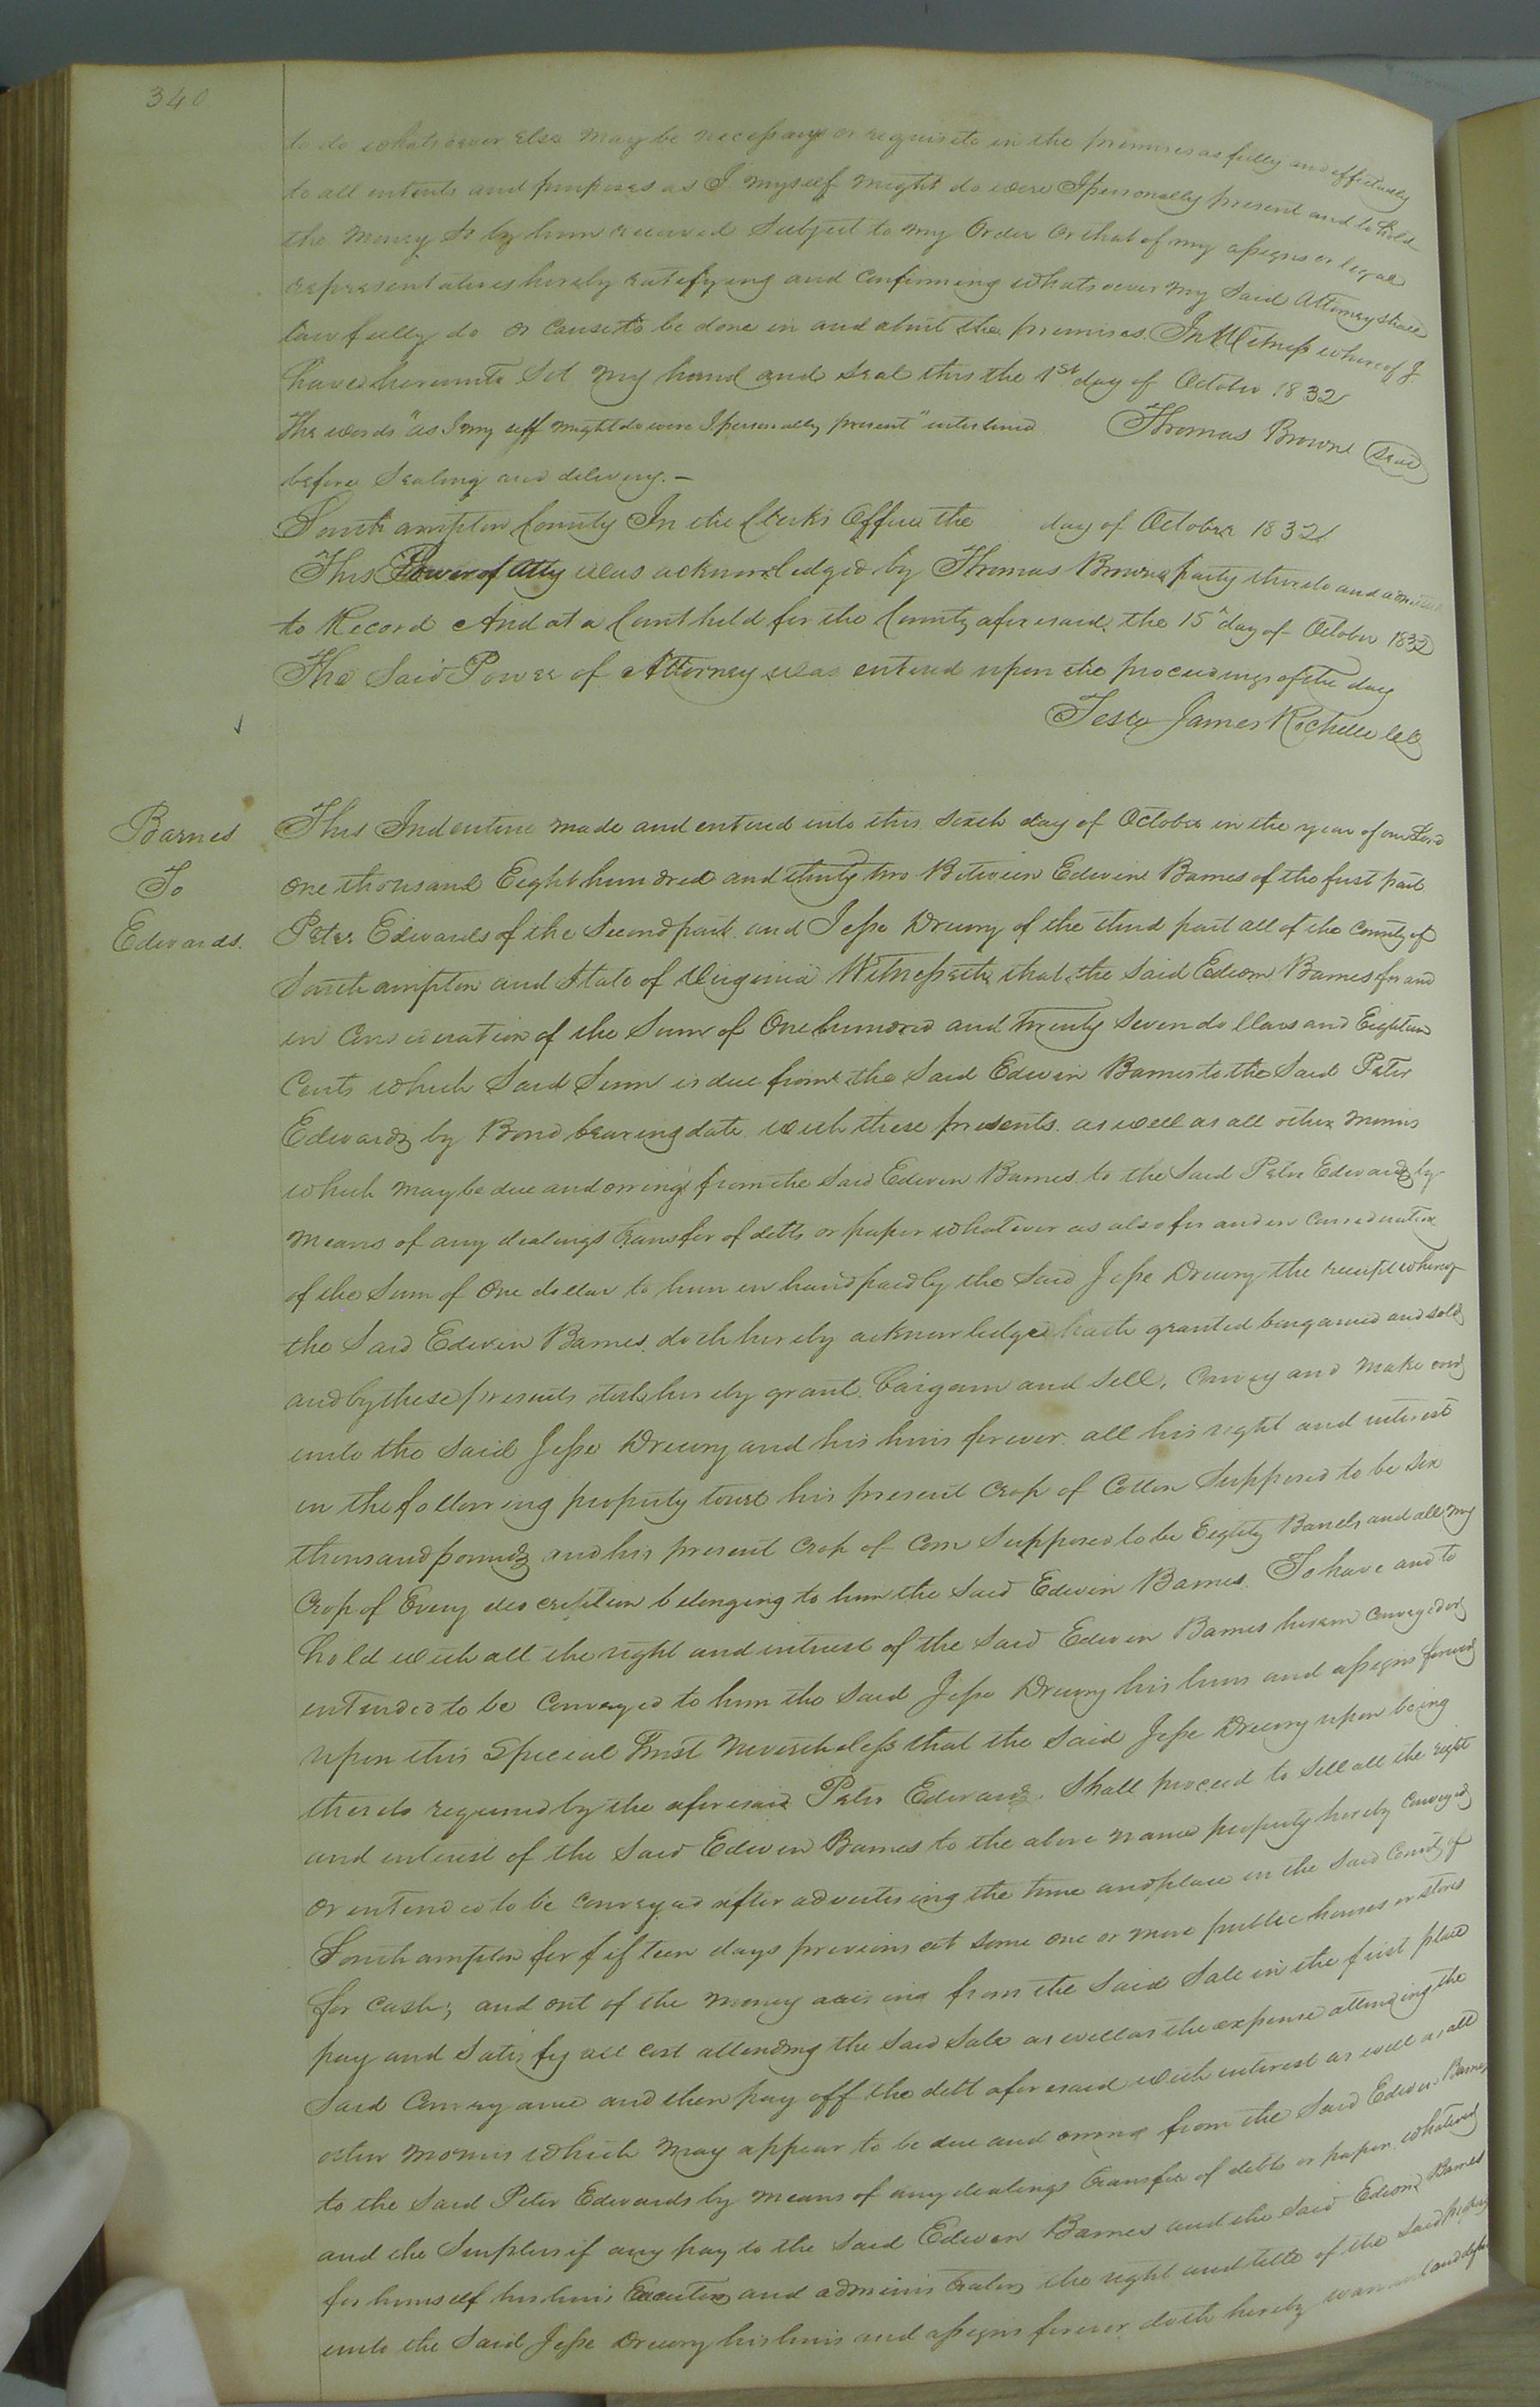 340
to do whatsoever else may be necessary or requisite in the premises as fully and effectually
to all intents and purposes as I myself might do were I personally present and to hold
the money so by him received Subject to my Order or that of my assigns or legal
representatives hereby ratifying and confirming whatsoever my Said Attorney shall
lawfully do or cause to be done in and about the premises. In Witness whereof I
have hereunto Set my hand and seal this the 1st day of October 1832
The words "as I my self might do were I personally present" interlined Thomas Browne Seal
before Sealing and delivery. —
Southampton County In the Clerks Office the day of October 1832
This Power of Atty was acknowledged by Thomas Browne party thereto and admitted
to Record And at a Court held for the County aforesaid the 15th day of October 1832
The Said Power of Attorney was entered upon the proceedings of the day
Teste James Rochelle CC
Barnes
To
Edwards.
This Indenture made and entered into this sixth day of October in the year of our Lord
one thousand Eight hundred and thirty two Between Edwin Barnes of the first part
Peter Edwards of the Second part and Jesse Drewry of the third part all of the County of
Southampton and State of Virginia Witnesseth that the Said Edwin Barnes for and
in Consideration of the Sum of One hundred and twenty Seven dollars and Eighteen
Cents which Said Sum is due from the Said Edwin Barnes to the Said Peter
Edwards by Bond bearing date with these presents as well as all other monies
which may be due and owing from the Said Edwin Barnes to the Said Peter Edwards by
means of any dealings transfer of debts or paper whatever as also for and in Consideration
of the Sum of One dollar to him in hand paid by the Said Jesse Drewry the receipt whereof
the Said Edwin Barnes doth hereby acknowledged hath granted bargained and sold
and by these presents doth hereby grant bargain and Sell, Convey and make over
unto the Said Jesse Drewry and his heirs forever all his right and interest
in the following property towit his present Crop of Cotton Supposed to be Six
thousand pounds and his present Crop of Corn Supposed to be Eighty Barrels and all my
Crop of Every description belonging to him the Said Edwin Barnes. To have and to
hold with all the right and interest of the Said Edwin Barnes herein Conveyed or
intended to be Conveyed to him the Said Jesse Drewry his heirs and assigns forever
upon this Special Trust nevertheless that the Said Jesse Drewry upon being
thereto required by the aforesaid Peter Edwards Shall proceed to Sell all the right
and interest of the Said Edwin Barnes to the above name property hereby Conveyed
or intended to be Conveyed after advertising the time and place in the Said County of
Southampton for fifteen days previous at some one or more public houses or stores
for Cash; and out of the money arising from the Said Sale in the first place
pay and Satisfy all Cost attending the Said Sale as well as the expense attending the
Said Conveyance and then pay off the debt aforesaid with interest as well as all
other monies which may appear to be due and owing from the Said Edwin Barnes
to the Said Peter Edwards by means of any dealings transfer of debts or paper whatever
and the Surplus if any pay to the Said Edwin Barnes and the Said Edwin Barnes
for himself his heirs Executors and administrators the right and title of the Said property
unto the Said Jesse Drewry his heirs and assigns forever doth hereby warrant and defend